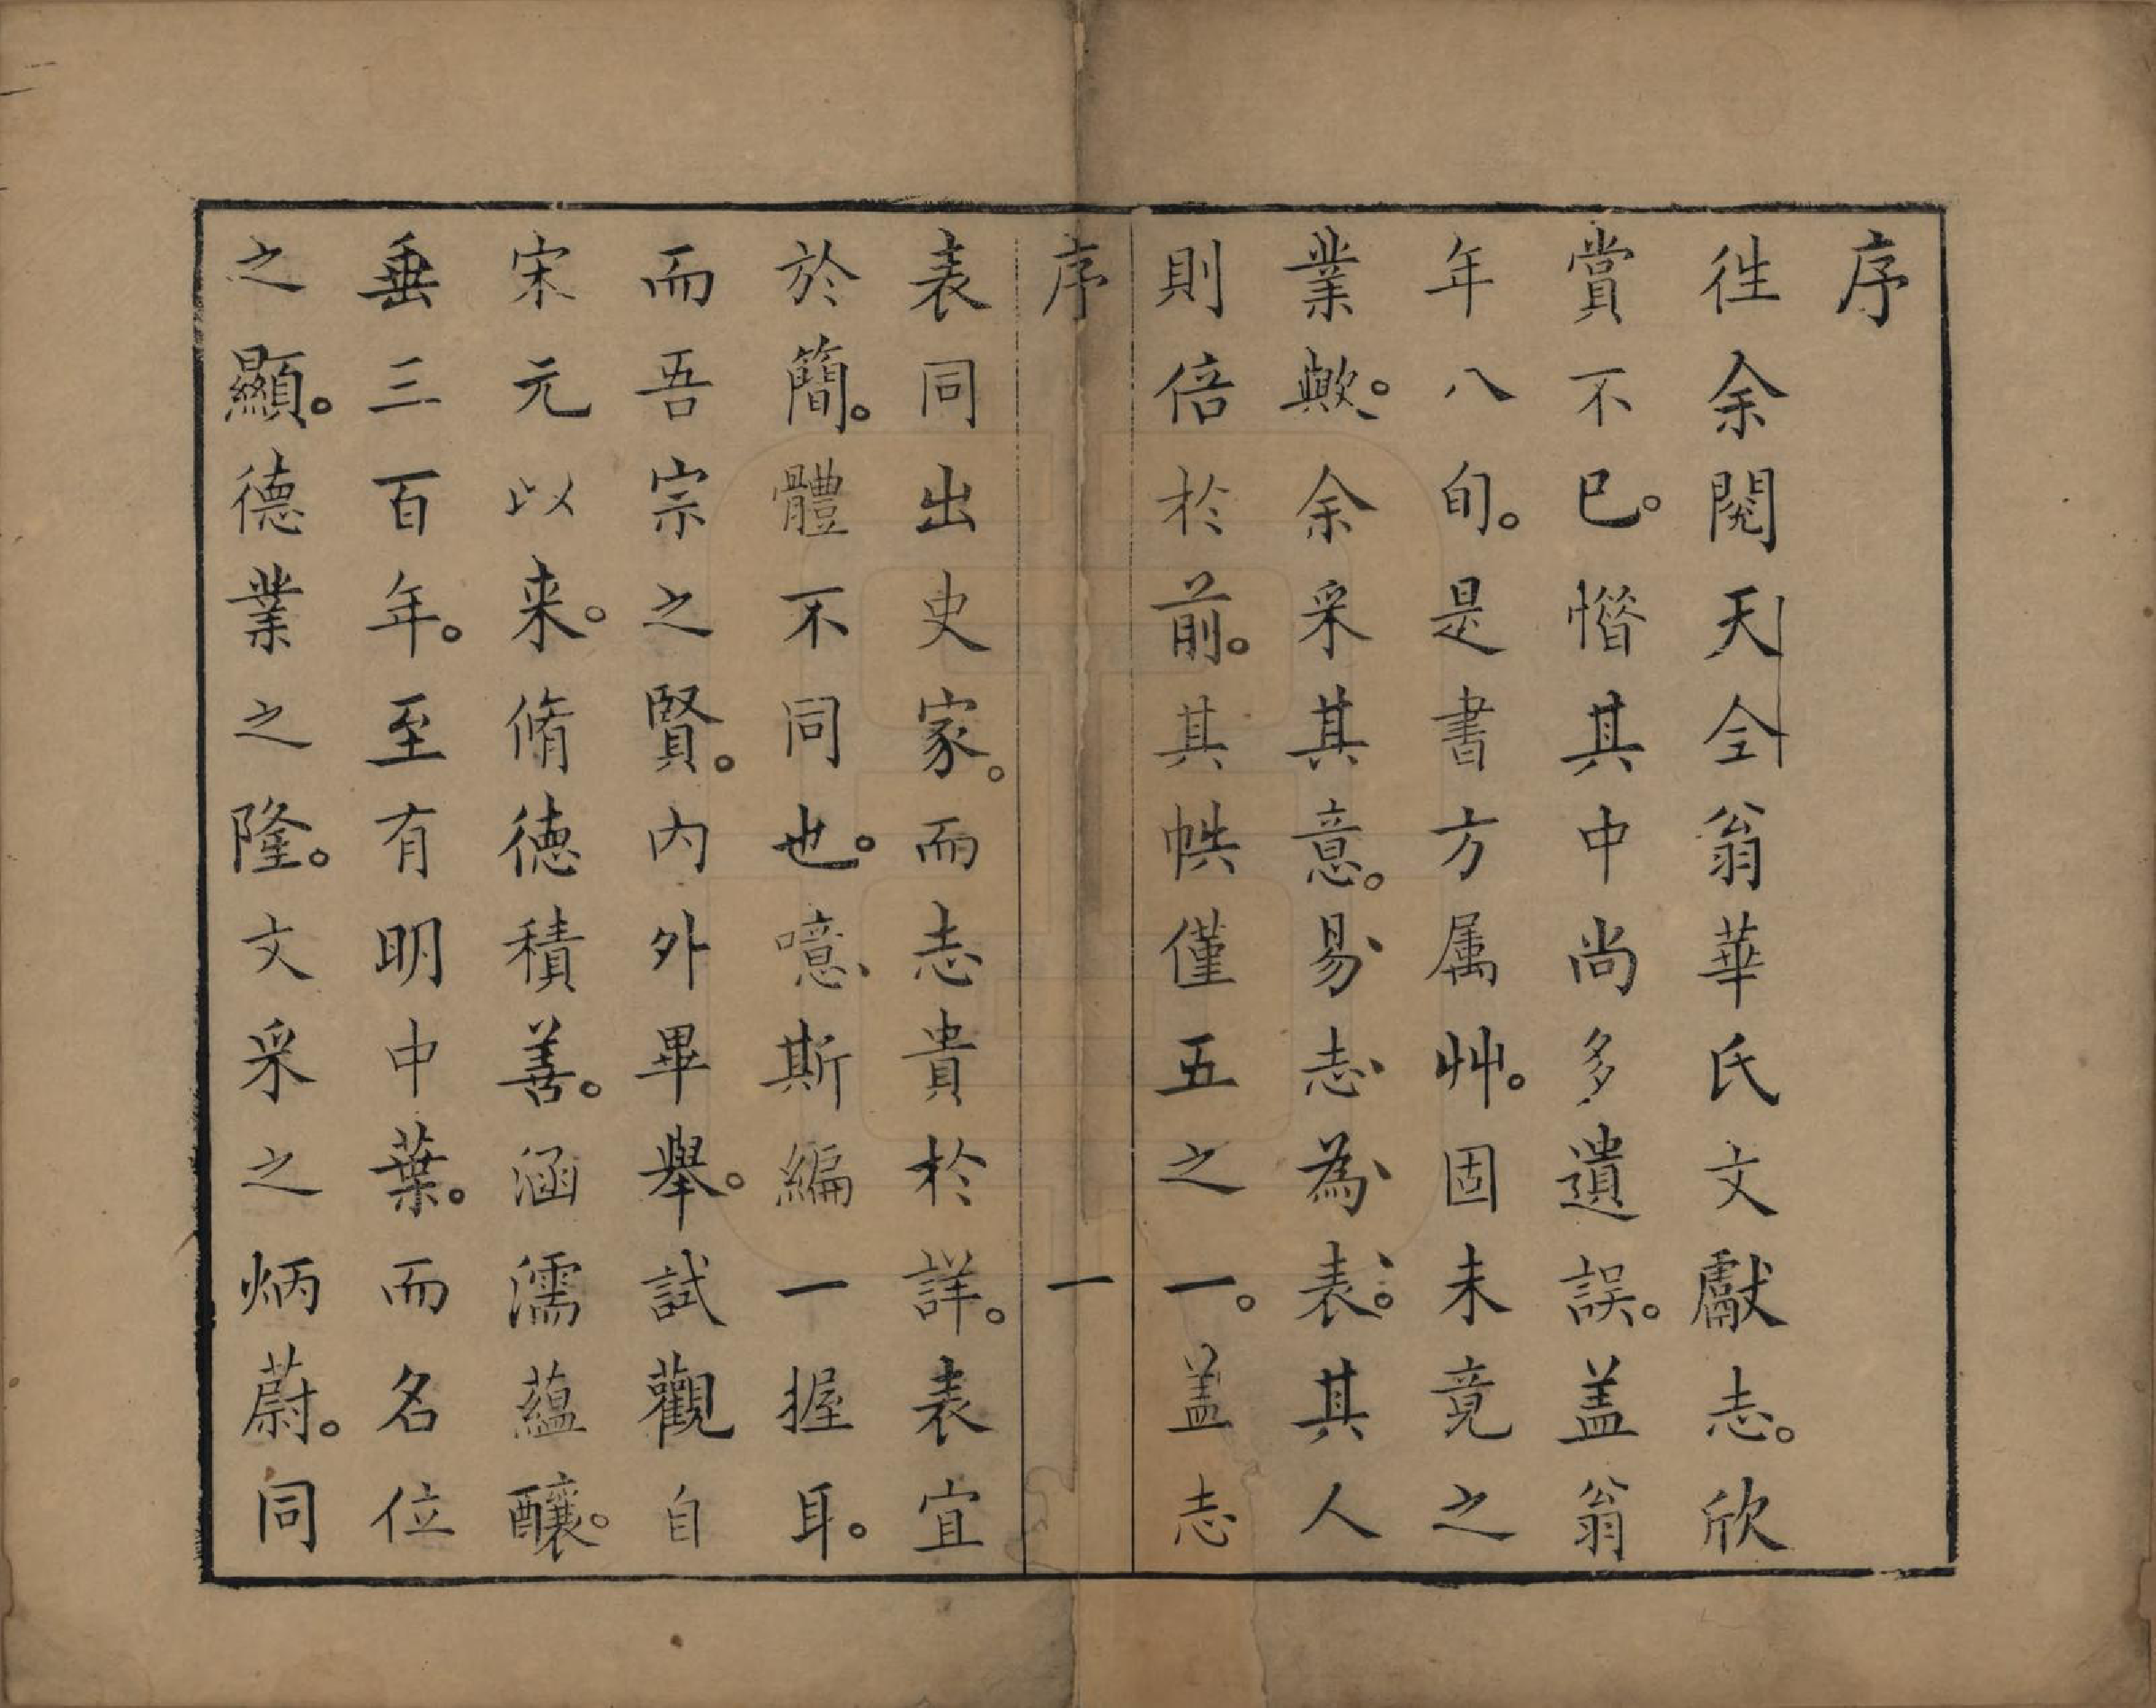 序
徃余閱天仝翁華氏文獻志。欣
賞不已。惜其中尚多遺誤。盖翁
年八旬。是書方属艸。固未竟之
業歟。余采其意。易志為表。其人
則倍於前。其帙僅五之一。盖志
序 一
表同出史家。而志貴於詳。表宜
於簡。體不同也。噫斯編一握耳。
而吾宗之賢。內外畢舉。試觀自
宋元以来。脩德積善。涵濡蘊釀。
垂三百年。至有明中葉。而名位
之顯。德業之隆。文采之炳蔚。同